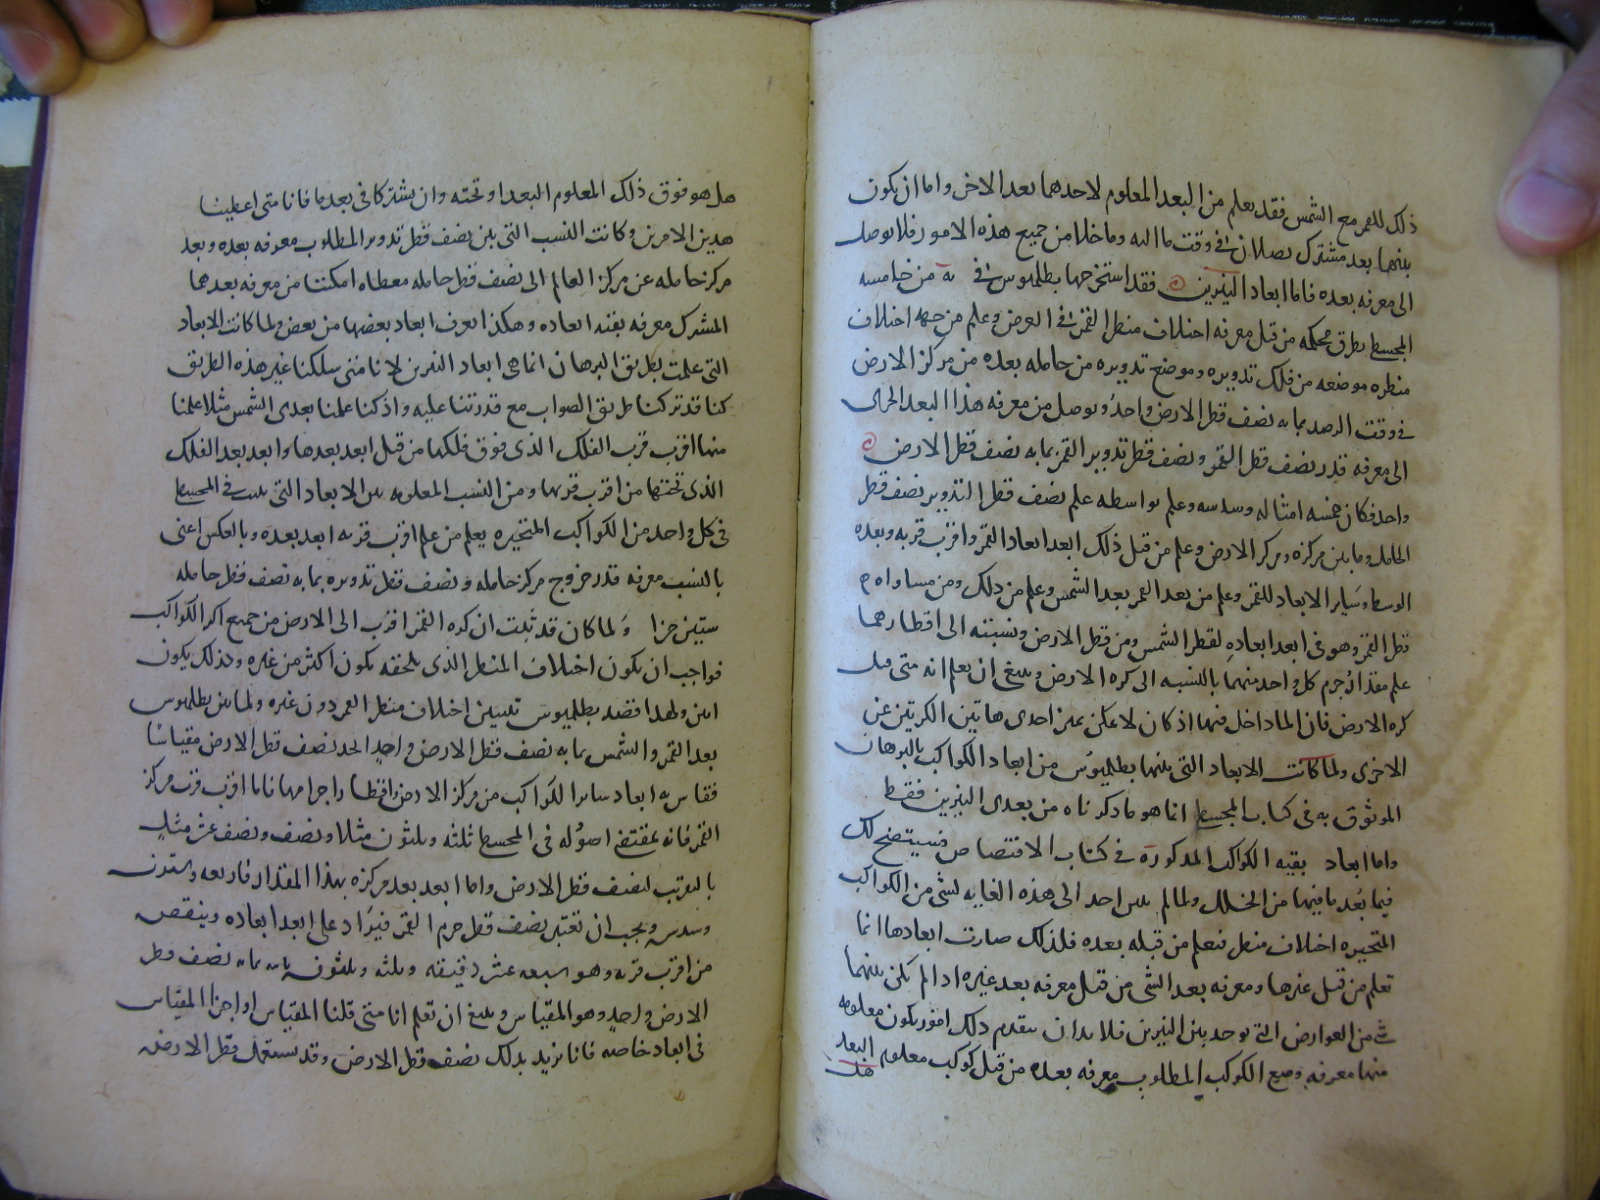 ذلك للقمر مع الشمس فقد يعلم من البعد المعلوم لاحدهما بعد الاخر واما ان يكون
بينهما بعد مشترك يصلان في وقت ما اليه وما خلا من جميع هذه الامور فلا يوصل
الى معرفه بعده فاما ابعاد النيرين فقد استخرجها بطلميوس في من خامسه
المجسطي بطرق محكمه من قبل معرفه اختلاف منظر القمر في العرض وعلم من جهه اختلاف
منظره موضعه من فلك تدويره وموضع تدويره من حامله بعده من مركز الارض
في وقت الرصد بما به نصف قطر الارض واحد ويوصل من معرفه هذا البعد الجزئي
الى معرفه قدر نصف قطر القمر ونصف قطر تدوير القمر بما به نصف قطر الارض
واحد فكان خمسه امثاله وسدسه وعلم بواسطه علم نصف قطر التدوير نصف قطر
الحامل وما بين مركزه ومركز الارض وعلم من قبل ذلك ابعد ابعاد القمر واقرب قربه وبعده
الوسط وساير الابعاد للقمر وعلم من بعد القمر بعد الشمس وعلم من ذلك ومن مساواه
قطر القمر وهو في ابعد ابعاده لقطر الشمس ومن قطر الارض ونسبته الى اقطارهما
علم مقدار جرم كل واحد منهما بالنسبه الى كره الارض وينبغي ان يعلم انه متى قيل
كره الارض فان الماء داخل فيها اذ كان لا يمكن تميز احدى هاتين الكرتين عن
الاخرى ولما كانت الابعاد التي بينها بطلميوس من ابعاد الكواكب بالبرهان
الموثوق به في كتاب المجسطي انما هو ما ذكرناه من بعدي النيرين فقط
واما ابعاد بقيه الكواكب المذكورة في كتاب الاقتصاص فسيتضح لك
فيما بعد ما فيها من الخلل ولما لم يكن احد الى هذه الغايه لشى من الكواكب
المتحيره اختلاف منظر فيعلم من قبله بعده فلذلك صارت ابعادها انما
تعلم من قبل غيرها ومعرفه بعد الشى من قبل معرفه بعد غيره اذا لم يكن بينهما
شى من العوارض التي توجد بين النيرين فلا بد ان يتقدم ذلك امور يكون معلومه
منها معرفه وضع الكوكب المطلوب معرفه بعده من قبل كوكب معلوم البعد
هل
هل هو فوق ذلك المعلوم البعد او تحته وان يشتركا في بعد ما فانا متى اعطينا
هذين الامرين وكانت النسب التي بين نصف قطر تدوير المطلوب معرفه بعده وبعد
مركز حامله عن مركز العالم الى نصف قطر حامله معطاه امكننا من معرفه بعدهما
المشترك معرفه بقيه ابعاده وهكذا يعرف ابعاد بعضها من بعض ولما كانت الابعاد
التي علمت بطريق البرهان انما هي ابعاد النيرين لانا متى سلكنا غير هذه الطريق
كنا قد تركنا طريق الصواب مع قدرتنا عليه واذ كنا علمنا بعدي الشمس مثلا علمنا
منهما اقرب قرب الفلك الذي فوق فلكها من قبل ابعد بعدها وابعد بعد الفلك
الذي تحتها من اقرب قربها ومن النسب المعلومه بين الابعاد التي بينت في المجسطي
في كل واحد من الكواكب المتحيره يعلم من علم اقرب قربه ابعد بعده وبالعكس اعني
بالنسب معرفه قدر خروج مركز حامله ونصف قطر تدويره بما به نصف قطر حامله
ستين جزا ولما كان قد ثبت ان كره القمر اقرب الى الارض من جميع اكر الكواكب
فواجب ان يكون اختلاف المنظر الذي يلحقه يكون اكثر من غيره وبذلك يكون
ابين ولهذا قصد بطلميوس تبيين اختلاف منظر القمر دون غيره ولما بين بطلميوس
بعد القمر والشمس بما به نصف قطر الارض واحد اتخذ نصف قطر الارض مقياسا
فقاس به ابعاد ساير الكواكب من مركز الارض واقطار اجرامها فاما اقرب قرب مركز
القمر فانه بمقتضى اصوله في المجسطي ثلثه وثلثون مثلا ونصف ونصف عشر مثل
بالتقريب لنصف قطر الارض واما ابعد بعد مركزه بهذا المقدار فاربعه وستون
وسدس ويجب ان نعتبر نصف قطر جرم القمر فيزاد على ابعد ابعاده وينقص
من اقرب قربه وهو سبعه عشر دقيقه وثلثه وثلثون ثانيه بما به نصف قطر
الارض واحد وهو المقياس وينبغي ان تعلم انا متى قلنا المقياس او اجزا المقياس
في ابعاد خاصه فانا نريد بذلك نصف قطر الارض وقد نستعمل قطر الارض